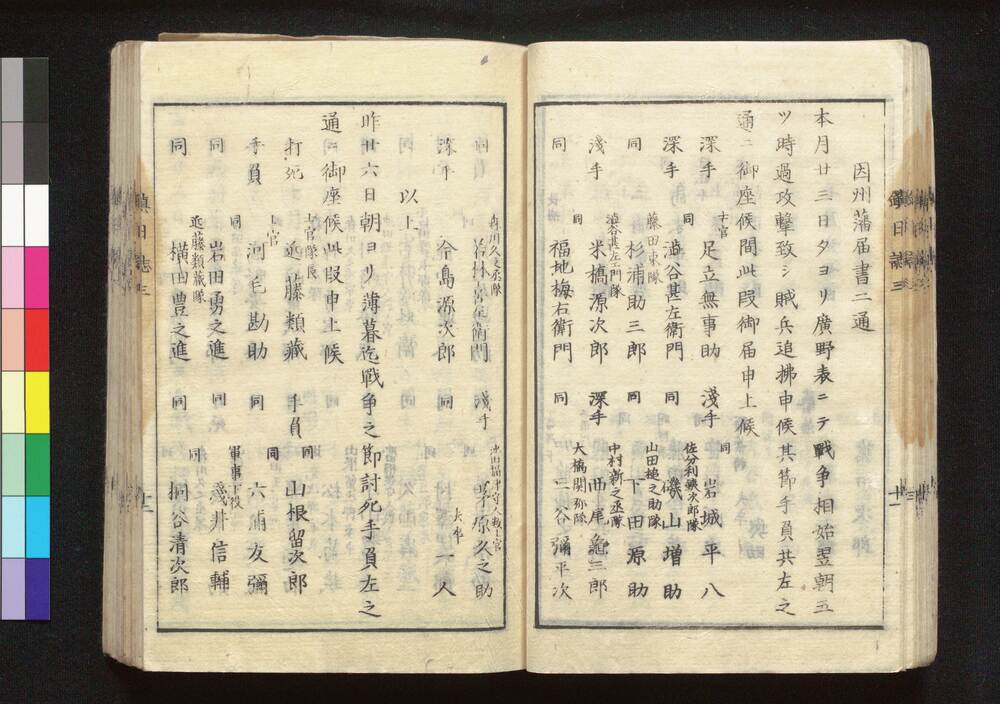 因州藩届書二通
本月廿三日夕ヨリ廣野表ニテ戰争相始翌朝五
ツ時過攻撃致シ賊兵追拂申候其節手負共左之
通ニ御座候間此段御届申上候
深手 士官 足立無事助 淺手 同 岩城平八
深手 同 澁谷甚左衛門 同 佐分利鐵次郎隊 礒山増助
同 藤田東隊 杉浦助三郎 同 山田槌之助隊 下田原助
淺手 澁谷甚左衛門隊 米橋源次郎 深手 中村新之丞隊 西尾龜三郎
同 同 福地梅右衛門 同 大橋関弥隊 三谷彌平次
同 森川久之丞隊 若林宮左衛門 淺手 久之助
深手 島源次郎 同 大
以上
昨廿六日朝ヨリ薄暮迄戰争之節討死手負左之
通ニ御座候此段申上候
打死 士官隊長 近藤類藏 手負 同 山根留次郎
手負 士官 河毛勘助 同 同 六浦友彌
同 同 岩田勇之進 同 軍事下役 井信輔
同 近藤類藏隊 横田豊之進 同 同 桐谷清次郎
鎮日誌三
十二
日誌三
十一